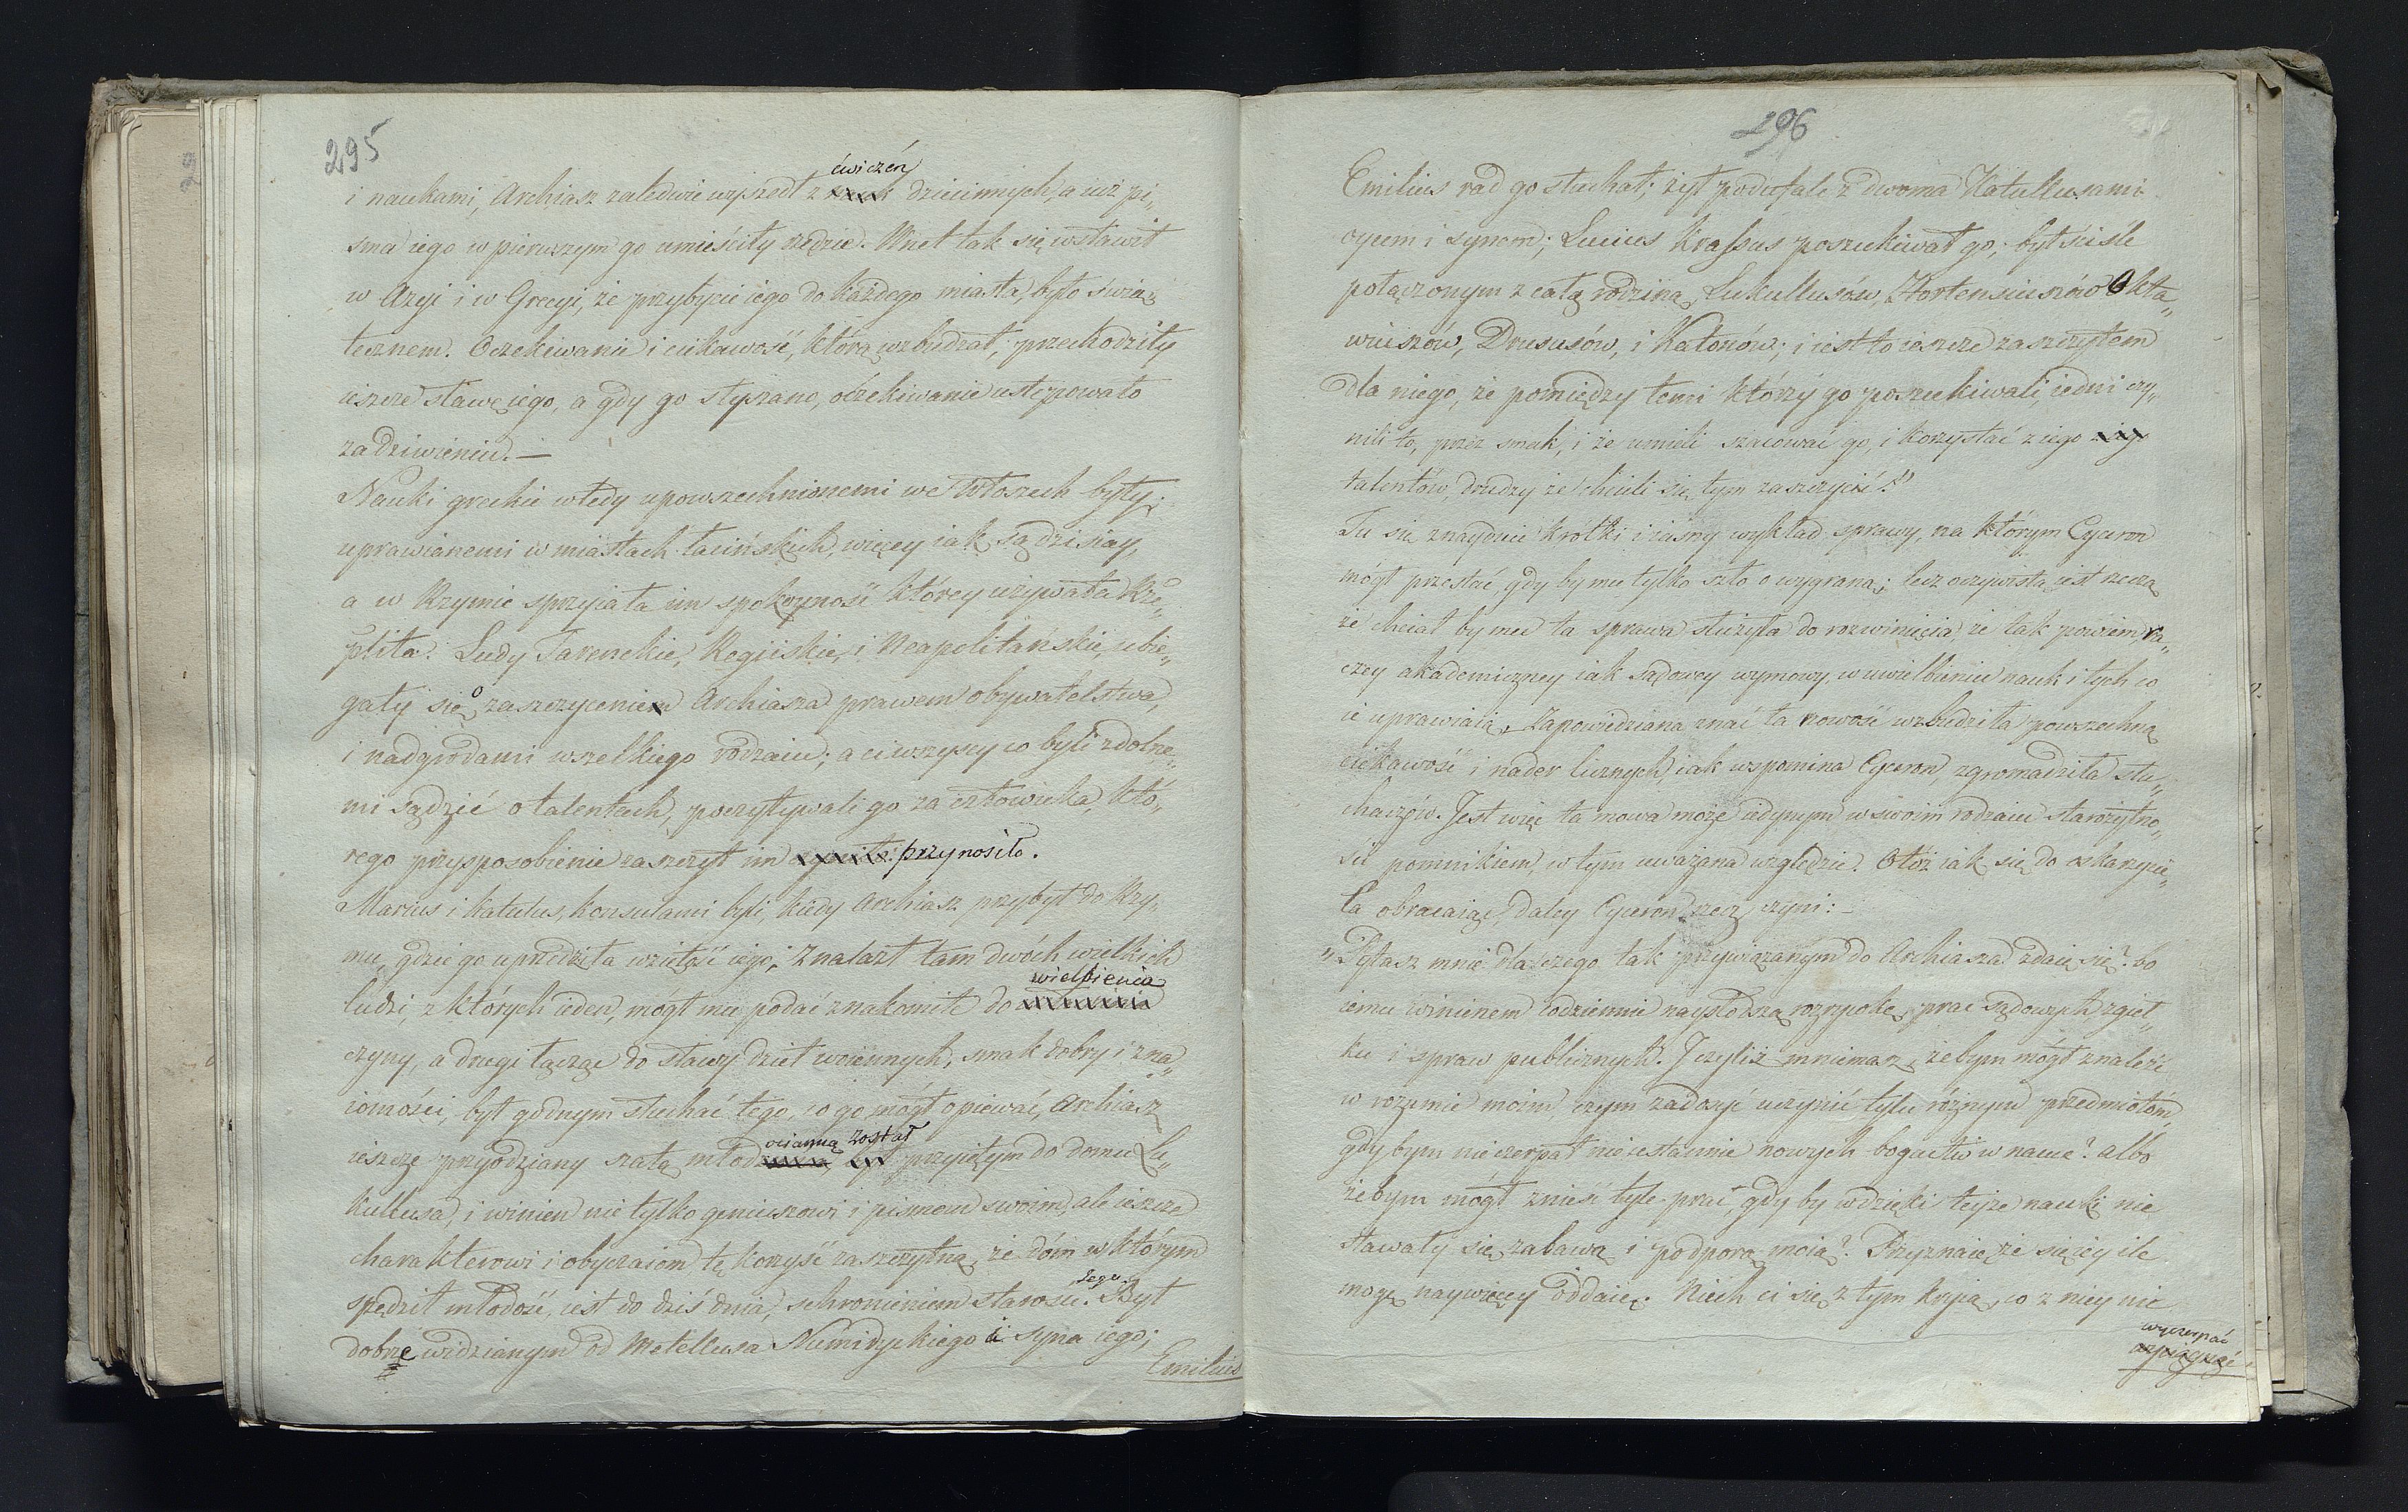 295
ćwiczeń
i naukami, Archiasz zaledwie wyszedł z nauk dziecinnych, a iuż pi„
sma iego w pierwszym go umieściły rzędzie. Wnet tak się wsławił
w Azyi i w Grecyi, że przybycie iego do każdego miasta, było świą„
tecznem. Oczekiwanie i ciekawość, którą wzbudzał, przechodziły
ieszcze sławę iego, a gdy go słyszano, oczekiwanie ustępowało
zadziwieniu. —
Nauki greckie wtedy upowszechnionemi we Włoszech były;
uprawianemi w miastach łacińskich, więcey iak są dzisiay,
a w Rzymie sprzyiała im spokoyność którey używała Rze„
plita. Ludy Tarenckie, Regiiskie, i Neapolitańskie, ubie„
gały się o zaszczycenie Archiasza prawem obywatelstwa,
i nadgrodami wszelkiego rodzaiu; a ci wszyscy co byli zdolne„
mi sądzić o talentach, poczytywali go za człowieka, któ„
rego przysposobienie zaszczyt im przynosiło.
Marius i Katulus, konsulami byli, kiedy Archiasz przybył do Rzy„
mu, gdzie go uprzedziła wziętość iego; znalazł tam dwóch wielkich
wielbienia
ludzi, z których ieden, mógł mu podać znakomite do
czyny, a drugi łącząc do sławy dzieł woiennych, smak dobry i zna„
iomości, był godnym słuchać tego, co go mógł opiewać, Archiasz
ocianną został
ieszcze przyodziany szatą młod był przyiętym do domu Lu„
kullusa, i winien nie tylko geniuszowi i pismom swoim, ale ieszcze
charakterowi i obyczaiom tę korzyść zaszczytną, że dom w którym
Jego.
spędził młodość, iest do dziś dnia, schronieniem starości. Był
dobrze widzianym od Metellusa Numidyckiego i syna iego;
Emilius
296
Emilius rad go słuchał; żył poufale z dwoma Katullusami
oycem i synem; Lucius Krassus poszukiwał go; był ściśle
połączonym z całą rodziną, Lukullusów, Hortensiuszów Okta„
wiuszów, Drususów, i Katonów; i iest to ieszcze zaszczytem
dla niego, że pomiędzy temi którzy go poszukiwali, iedni czy„
nili to, przez smak, i że umieli szacować go, i korzystać z iego
talentów, drudzy że chcieli się tym zaszczycić."
Tu się znayduie krótki i iasny wykład sprawy, na którym Cyceron
mógł przestać, gdy by mu tylko szło o wygraną; lecz oczywistą iest rzeczą
że chciał by mu ta sprawa służyła do rozwinięcia, że tak powiem, ra„
czey akademiczney iak sądowey wymowy, w uwielbieniu nauk i tych co
ie uprawiaią. Zapowiedziana znać ta nowość wzbudziła powszechną
ciekawość i nader licznych, iak wspomina Cyceron, zgromadziła słu„
chaczów. Jest więc ta mowa może iedynym w swoim rodzaiu starożytno„
ści pomnikiem, w tym uważana względzie. Otóż iak się do oskarzycie„
la obracaiąc, daley Cyceron rzecz czyni: —
„Pytasz mnie dlaczego tak przywiązanym do Archiasza zdaię się? bo
iemu winienem codziennie naysłodszą rozrywkę, prac sądowych zgieł„
ku i spraw publicznych. J czyliż mniemasz, że bym mógł znaleźć
w rozumie moim, czym zadosyć uczynić tylu różnym przedmiotóm,
gdy bym nie czerpał nieustannie nowych bogactw w nauce? albo
że bym mógł znieść tyle prac, gdy by wdzięki teyże nauki nie
stawały się zabawą i podporą moią? Przyznaię że się iey ile
mogę naywięcey oddaię. Niech ci się z tym kryią, co z niey nic
wyczerpać